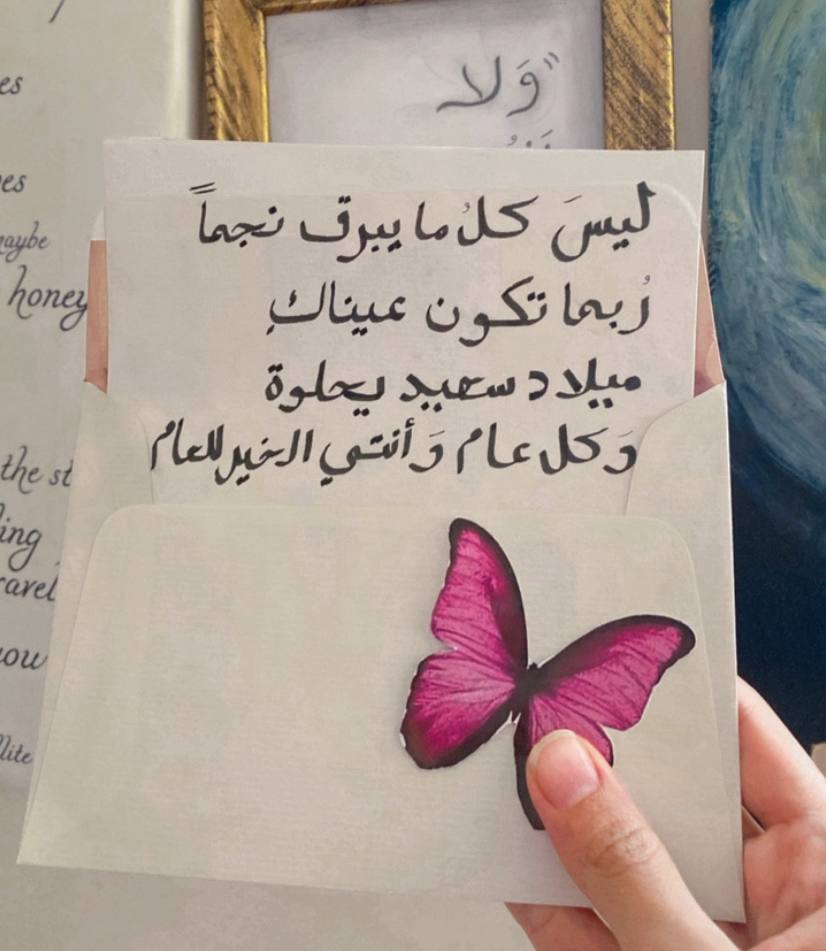 "وَلا
ليسَ كلُ ما يبرق نجماً
رُبما تكون عيناكِ
ميلاد سعيد يحلوة
وَكل عام وَأنتي الخير للعام
es
es
maybe
honey
the st
ing
ravel
ou
llite